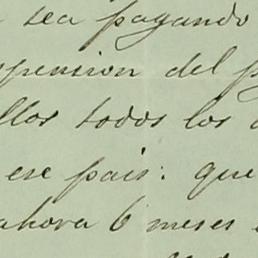 sea pagando
spension del p
llos todos los
ese pais: que
ahora 6 meses